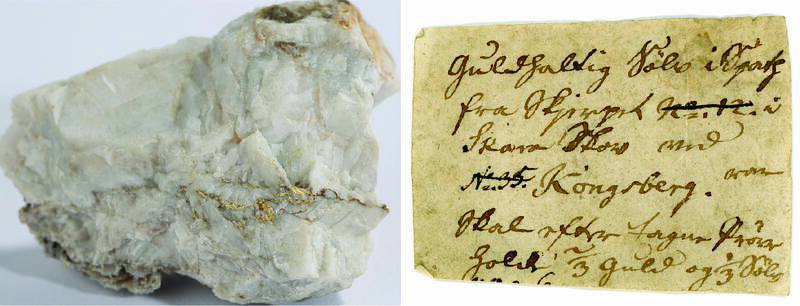 Guldhaltig Sølv i Spath
fra Skjerpet No. 12. i
Skara Skov ved
No. 35. Kongsberg. rar
Skal efter tagne Prøve
holde 2/3 Guld og 1/3 Sølv